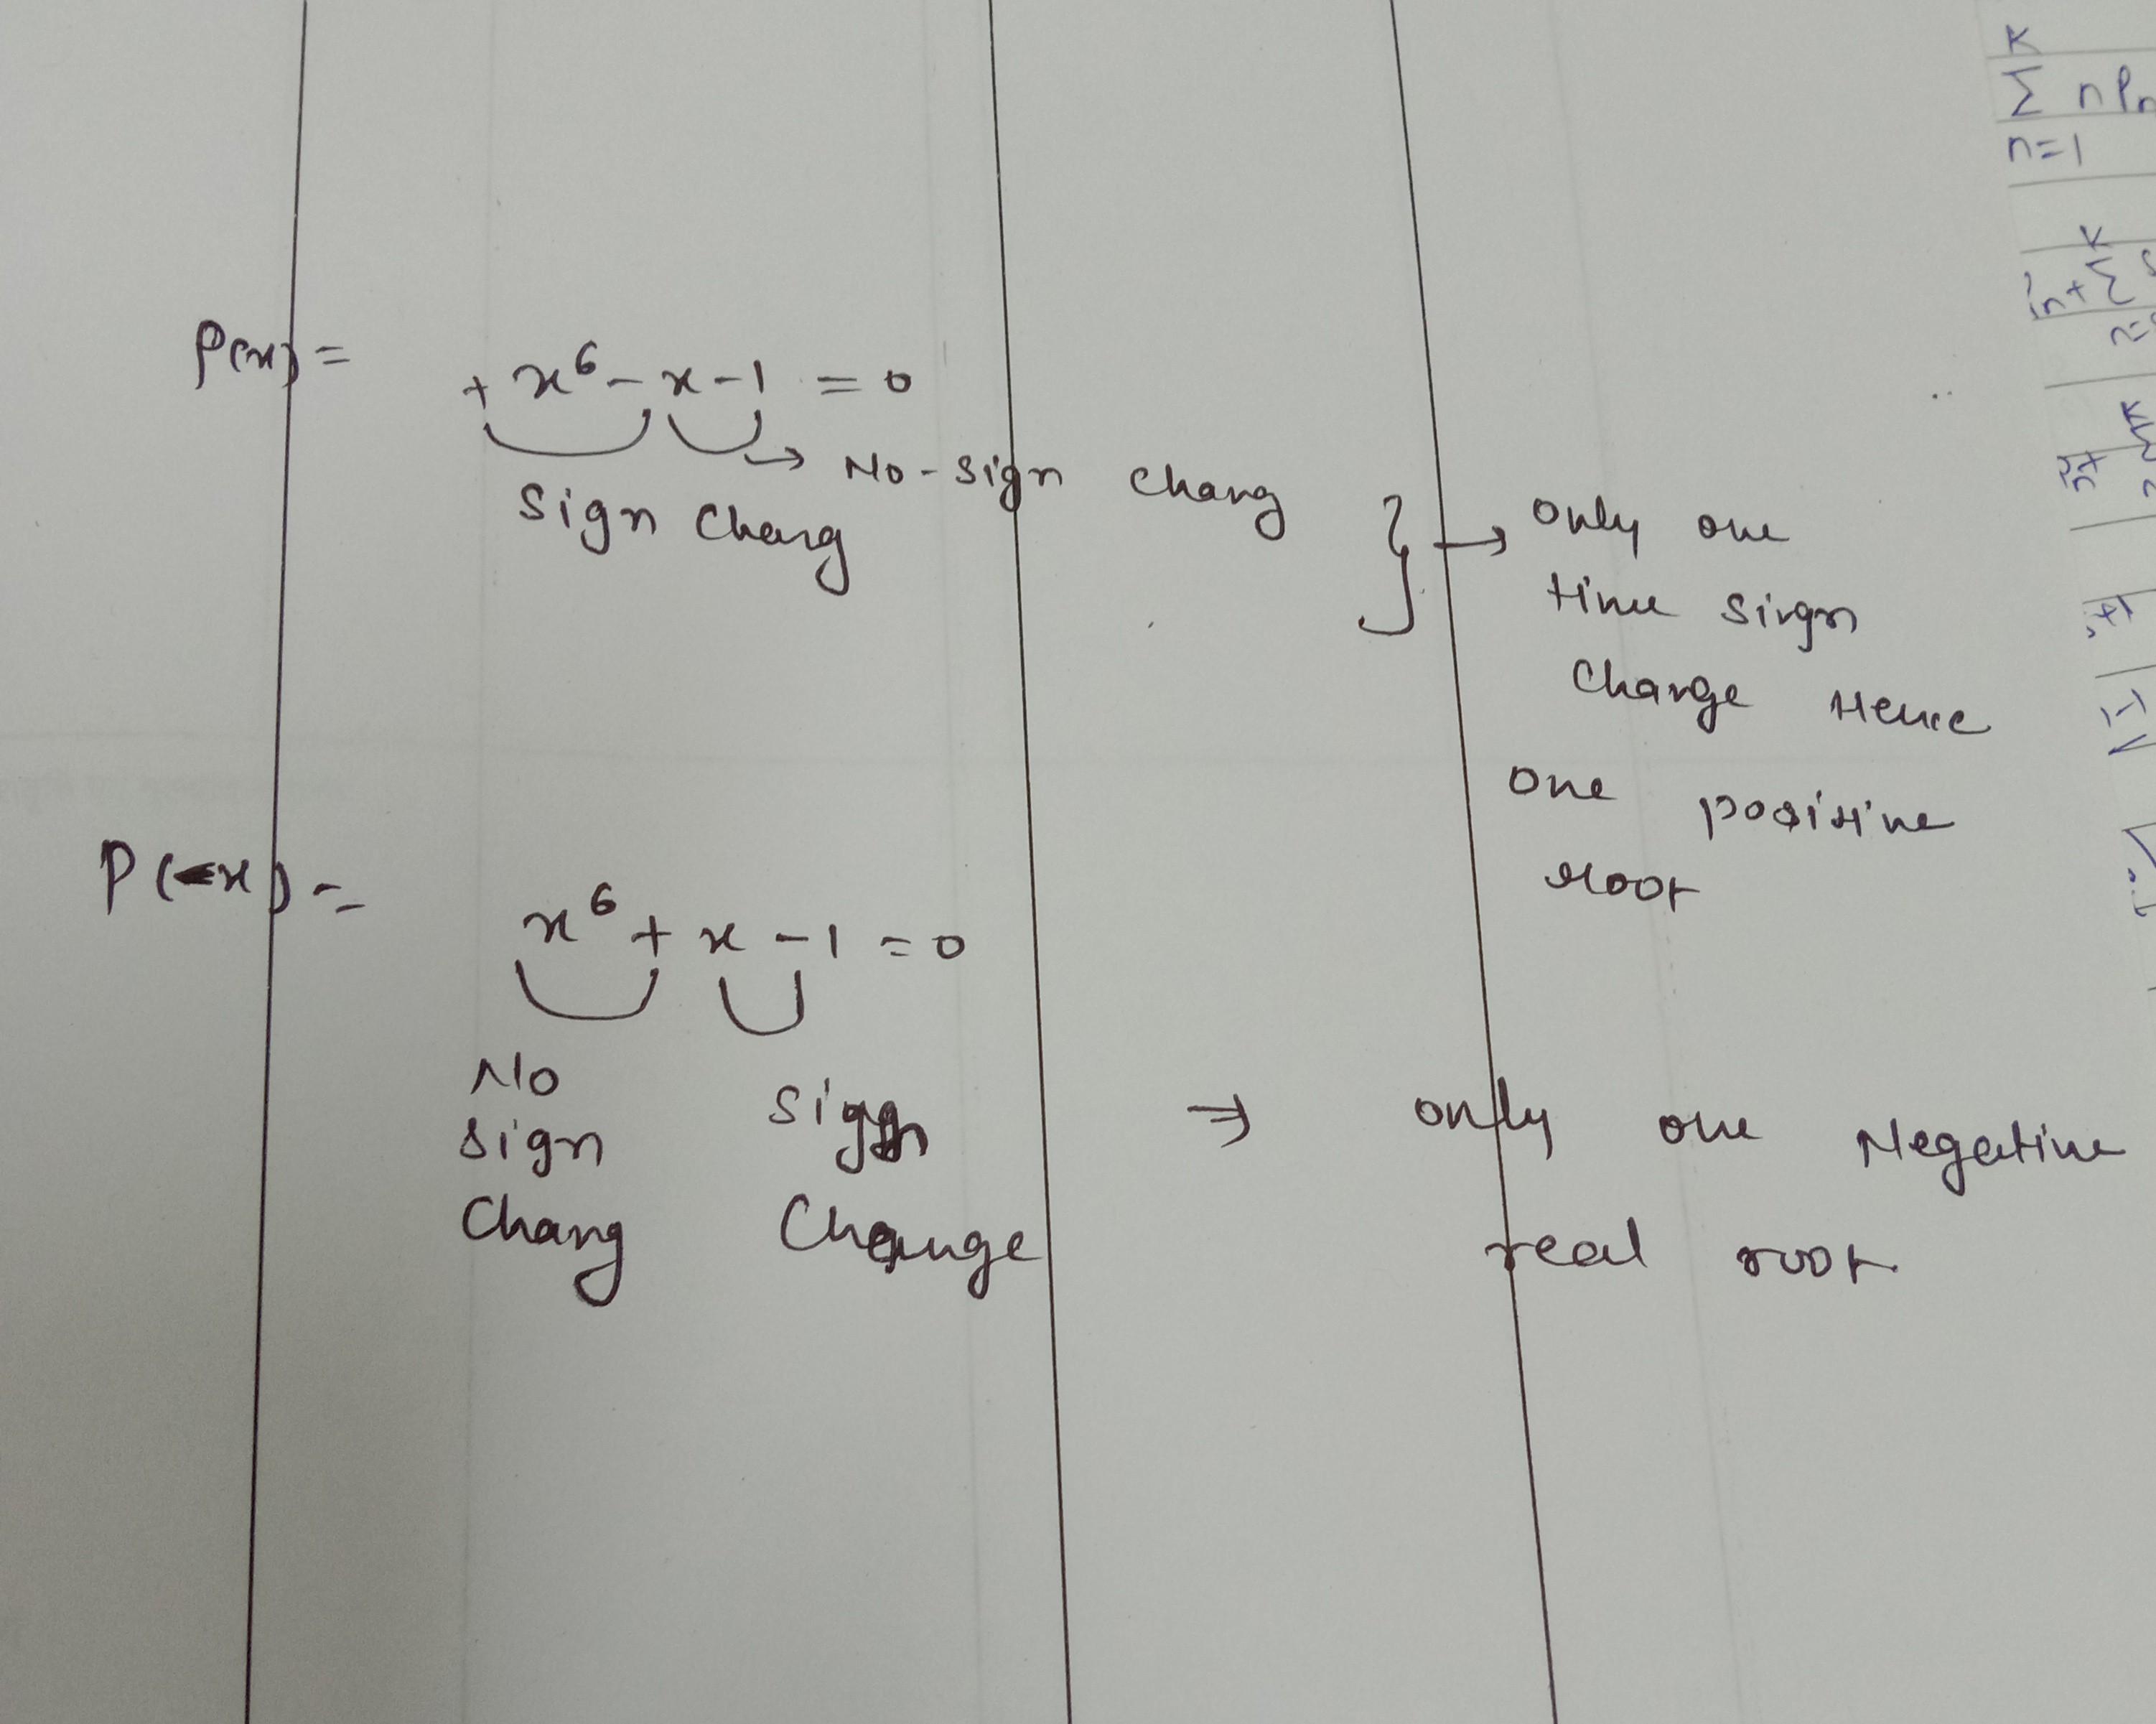 P(x) = + x⁶ - x - 1 = 0
→ No-sign chang
sign chang
} → only one
time sirgn
change Hence
one positive
root
P(-x) = x⁶ + x - 1 = 0
No
sign
chang
sign
change
⇒ only one Negative
real root
K
Σ n Pn
n=1
K